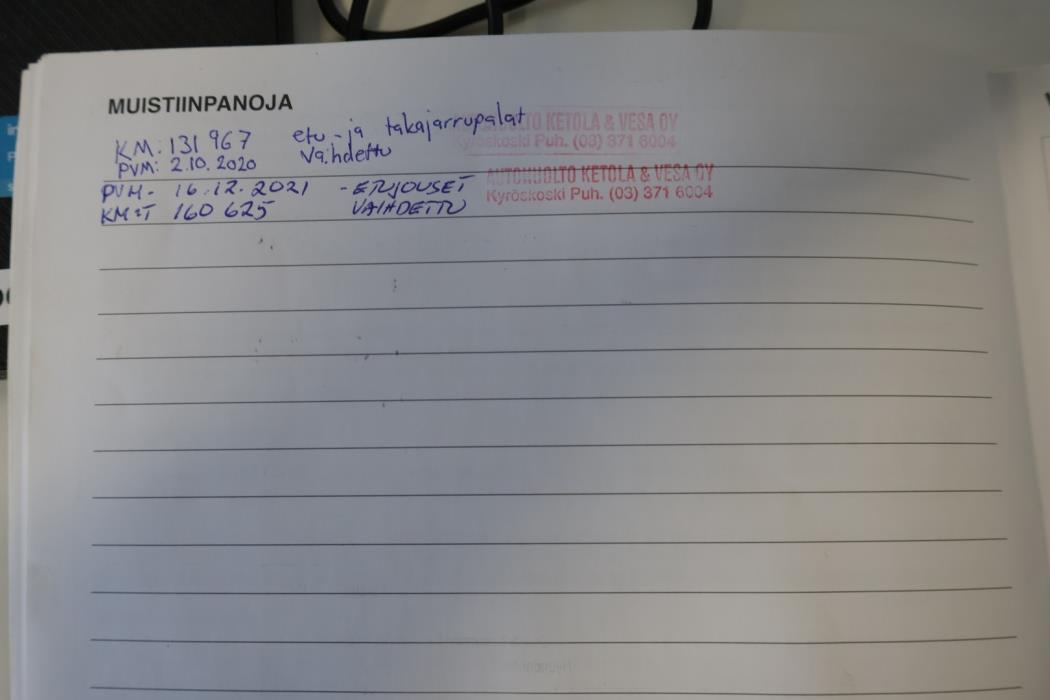 MUISTIINPANOJA
KM: 131 967 etu- ja takajarrupalat
PVM: 2.10.2020 Vaihdettu
HUOLTO KETOLA & VESA OY
Kyröskoski Puh. (03) 371 6004
PVM- 16.12.2021 - ETUJOUSET
KM:T 160 625 VAIHDETTU
AUTOHUOLTO KETOLA & VESA OY
Kyröskoski Puh. (03) 371 6004